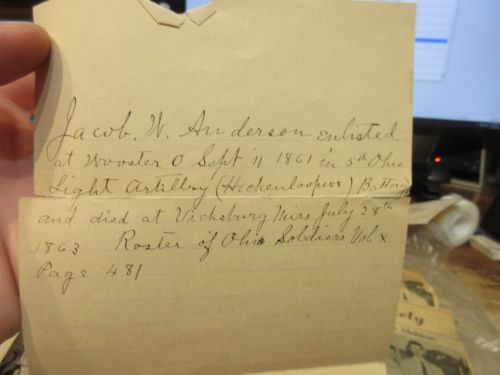 Jacob. W. Anderson enlisted
at Wooster O Sept 11 1861 in 5th Ohio
Light Artillery (Hickenloopers) Battery
and died at Vicksburg Miss July 28th
1863 Roster of Ohio Soldiers Vol x
Page 481
ety